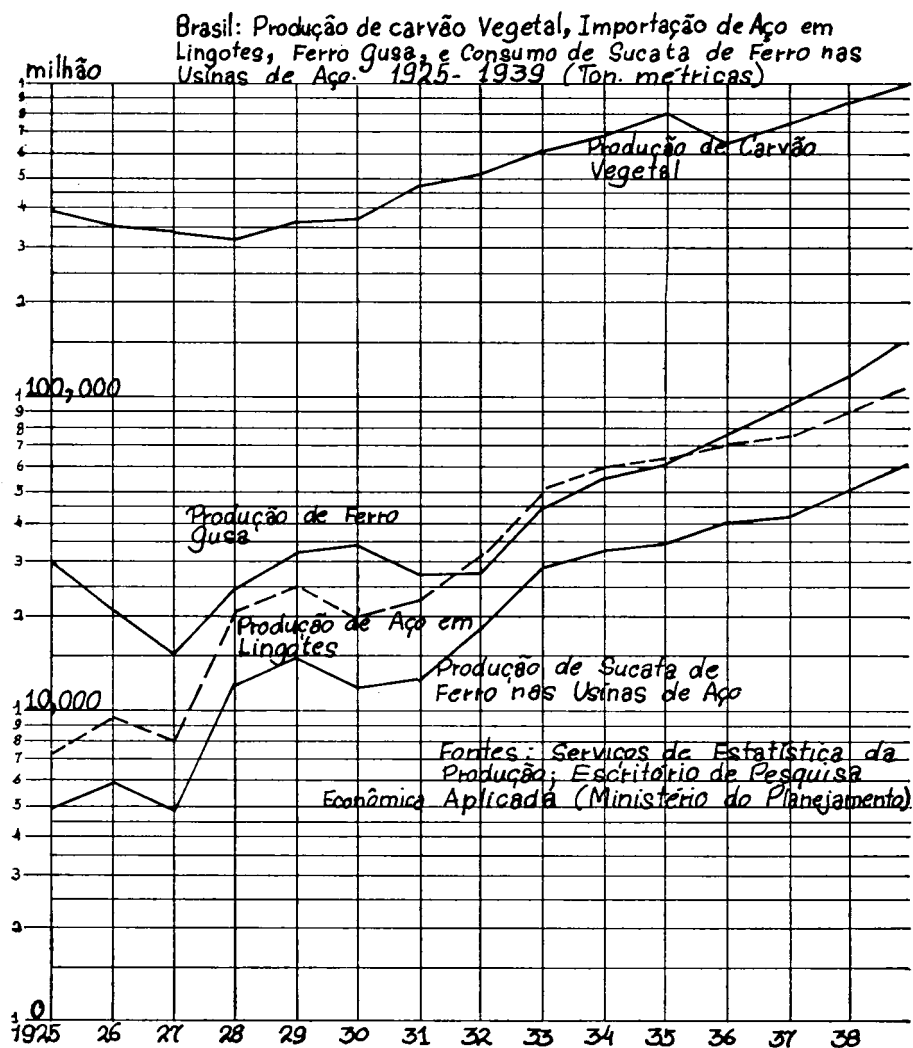 Brasil: Produção de carvão Vegetal, Importação de Aço em
Lingotes, Ferro Gusa, e Consumo de Sucata de Ferro nas
Usinas de Aço. 1925-1939 (Ton. métricas)
milhão
1
9
8
7
6
5
4
3
2
Produção de Carvão
Vegetal
1 100,000
9
8
7
6
5
4
3
2
Produção de Ferro
Gusa
Produção de Aço em
Lingotes
Produção de Sucata de
Ferro nas Usinas de Aço
1 10,000
9
8
7
6
5
4
3
2
Fontes: Serviços de Estatística da
Produção; Escritório de Pesquisa
Econômica Aplicada (Ministério do Planejamento)
1 0
1925 26 27 28 29 30 31 32 33 34 35 36 37 38